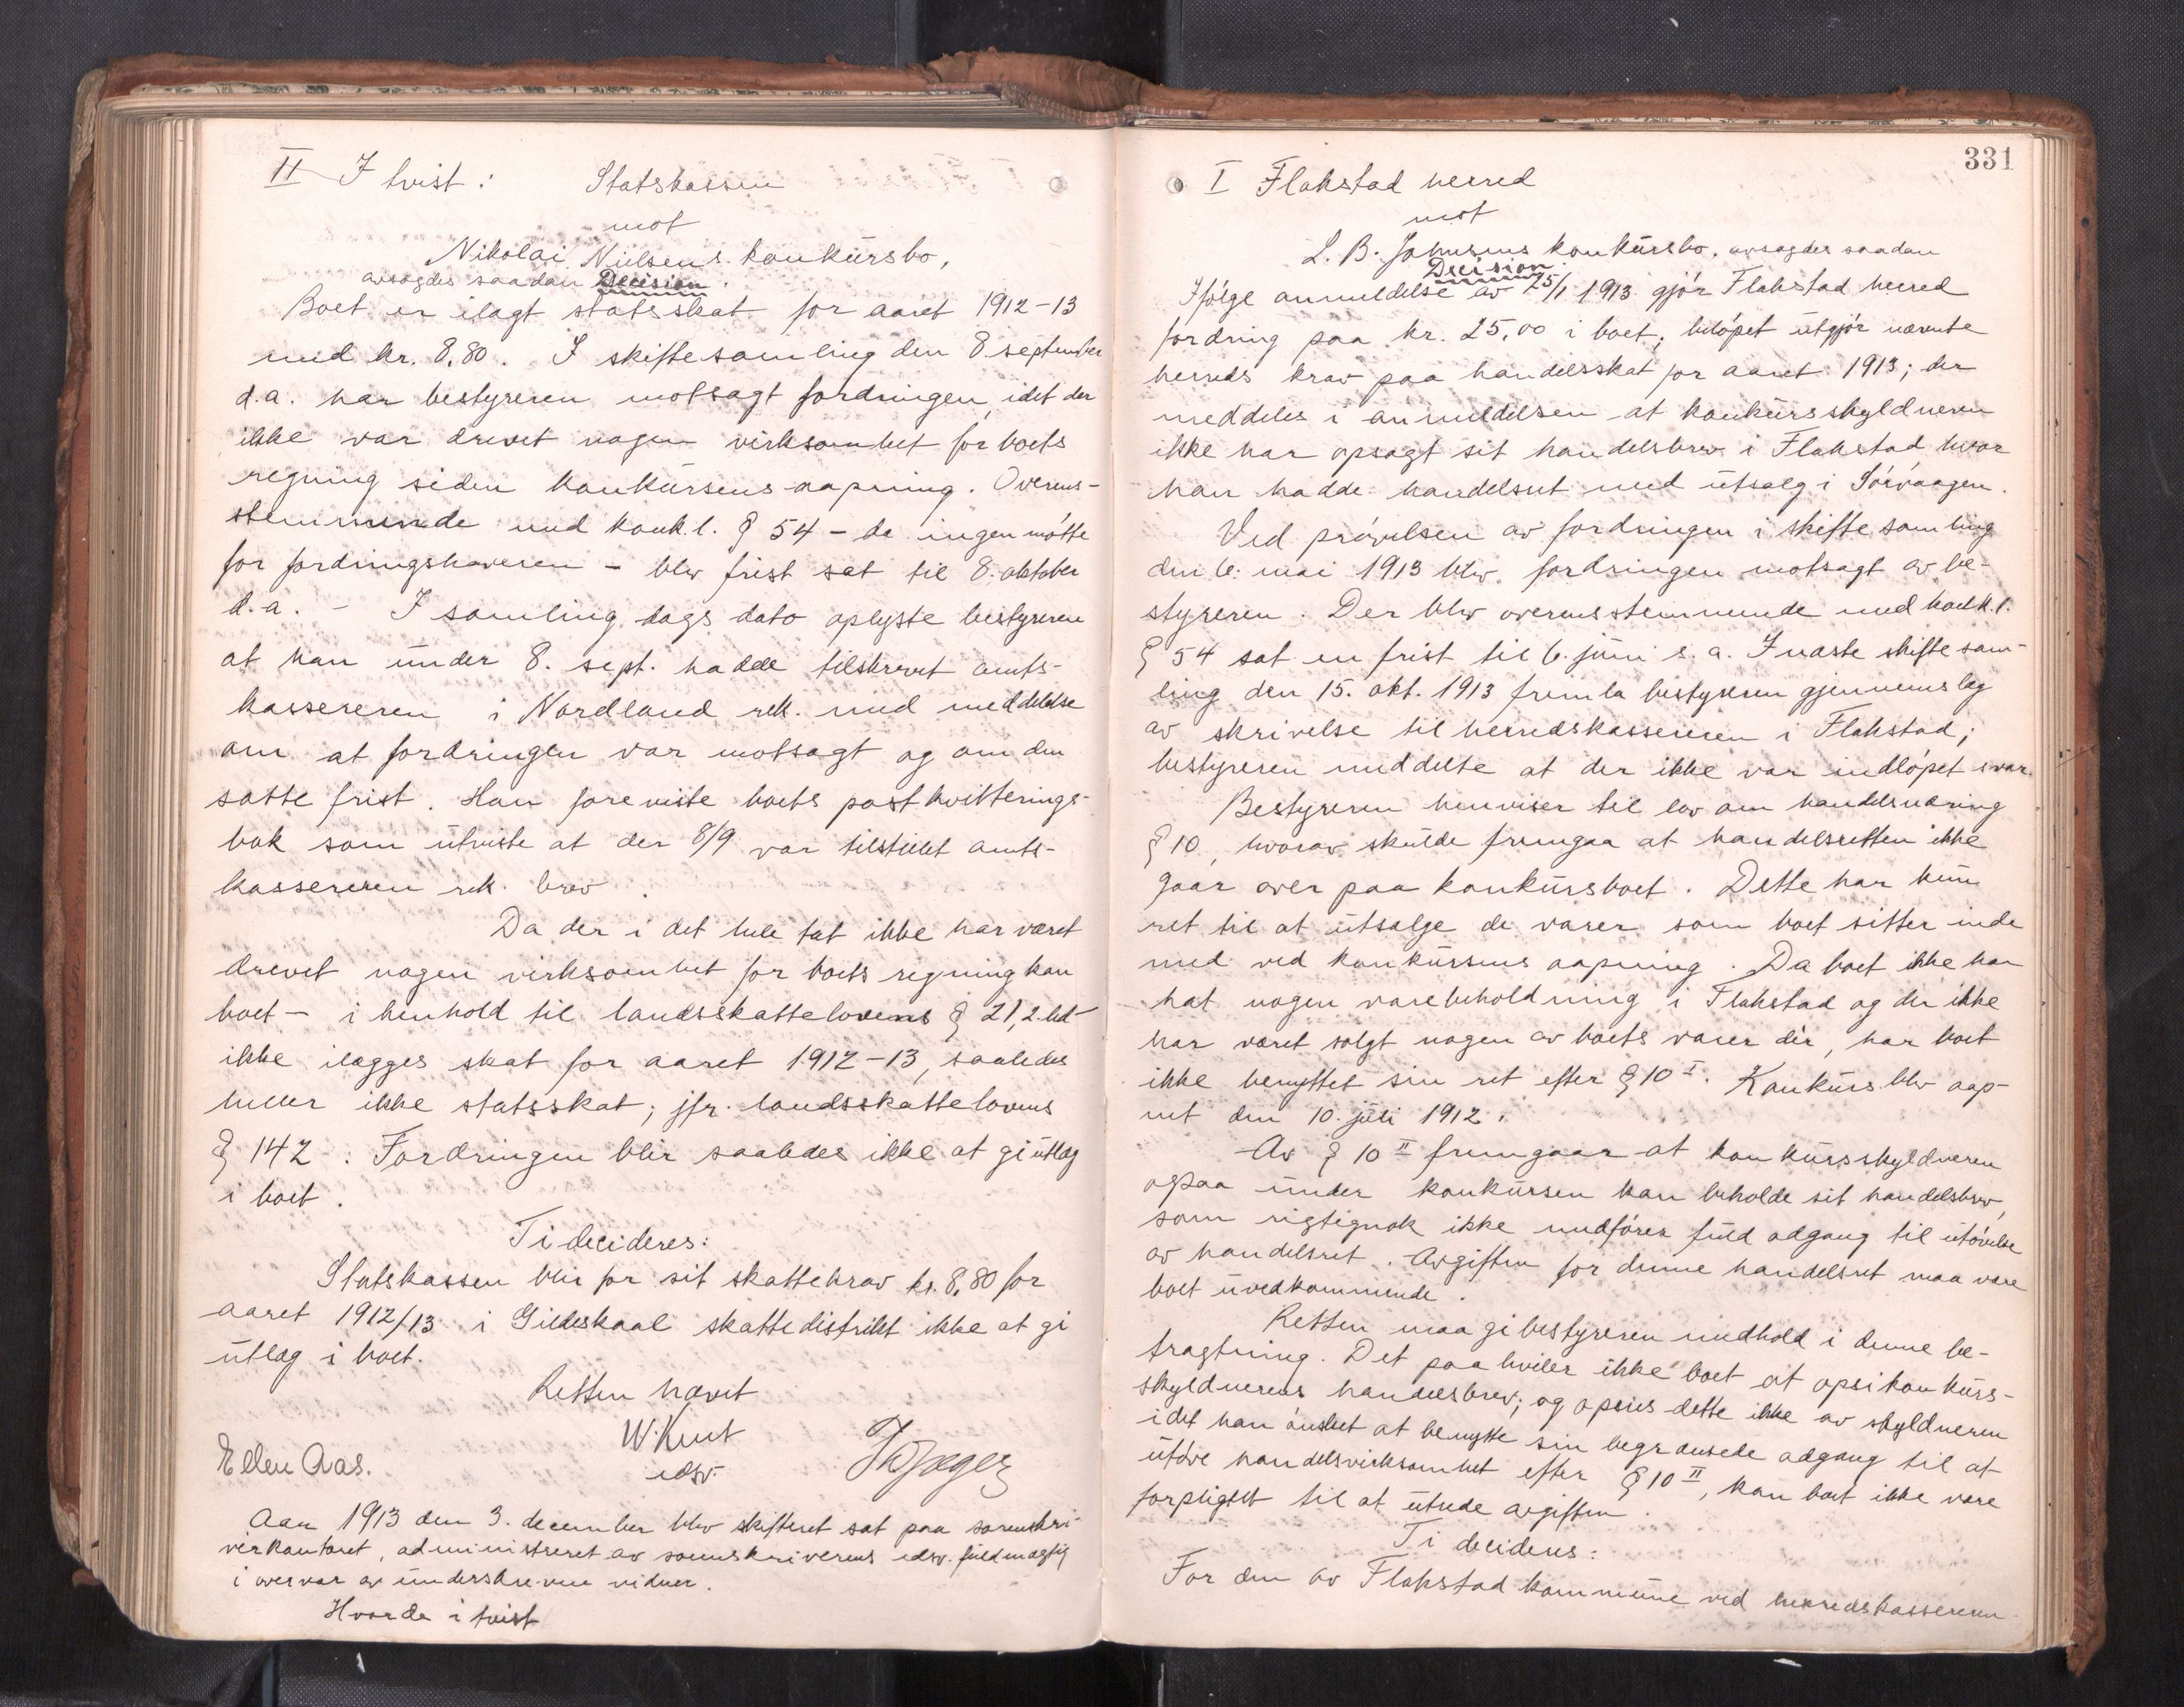 II I tvist: Statskassen
mot
Nikolai Nielsens konkursbo,
avsagdes saadan Decision.
Boet er ilagt statsskat for aaret 1912-13
med kr. 8,80. I skiftesamling den 8. september
d.a. har bestyreren motsagt fordringen, idet der
ikke var drevet nogen virksomhet for boets
regning siden konkursens aapning. Overens-
stemmende med konk.l. § 54 - da ingen møtte
for fordringshaveren - blev frist sat til 8. oktober
d.a. - I samling dags dato oplyste bestyreren
at han under 8. sept. hadde tilskrevet amts-
kassereren i Nordland rek. med meddelelse
om at fordringen var motsagt og om den
satte frist. Han foreviste boets postkvitterings-
bok som utviste at der 8/9 var tilstillet amts-
kassereren rek. brev.
Da der i det hele tat ikke har været
drevet nogen virksomhet for boets regning kan
boet - i henhold til landsskattelovens § 21, 2. led -
ikke ilægges skat for aaret 1912-13, saaledes
heller ikke statsskat; jfr. landsskattelovens
§ 142. Fordringen blir saaledes ikke at gi utlæg
i boet.
Ti decideres:
Statskassen blir for sit skattekrav kr. 8,80 for
aaret 1912/13 i Gildeskaal skattedistrikt ikke at gi
utlæg i boet.
Retten hævet
W. Knut
edsv.
Ellen Aas.
Aar 1913 den 3. december blev skifteret sat paa sorenskri-
verkontoret, administreret av sorenskriverens edsv. fuldmægtig
i overvær av underskrevne vidner.
Hvorda i tvist
331
I Flakstad herred
mot
L. B. Johnsens konkursbo, avsagdes saadan
Decision.
Ifølge anmeldelse av 25/1 1913 gjør Flakstad herred
fordring paa kr. 25,00 i boet; beløpet utgjør nævnte
herreds krav paa handelsskat for aaret 1913; der
meddeles i anmeldelsen at konkursskyldneren
ikke har opsagt sit handelsbrev i Flakstad hvor
han hadde handelsret med utsalg i Sørvaagen.
Ved prøvelsen av fordringen i skiftesamling
den 6. mai 1913 blev fordringen motsagt av be-
styreren. Der blev overensstemmende med konk.l.
§ 54 sat en frist til 6. juni s.a. I næste skiftesam-
ling den 15. okt. 1913 fremla bestyreren gjennemslag
av skrivelse til herredskassereren i Flakstad;
bestyreren meddelte at der ikke var indløpet svar.
Bestyreren henviser til lov om handelsnæring
§ 10, hvorav skulde fremgaa at handelsretten ikke
gaar over paa konkursboet. Dette har kun
ret til at utsælge de varer som boet sitter inde
med ved konkursens aapning. Da boet ikke har
hat nogen varebeholdning i Flakstad og der ikke
har været solgt nogen av boets varer dér, har boet
ikke benyttet sin ret efter § 10 I. Konkurs blev aap-
net den 10. juli 1912.
Av § 10 II fremgaar at konkursskyldneren
ogsaa under konkursen kan beholde sit handelsbrev,
som rigtignok ikke medfører fuld adgang til utøvelse
av handelsret. Avgiften for denne handelsret maa være
boet uvedkommende.
Retten maa gi bestyreren medhold i denne be-
tragtning. Det paahviler ikke boet at opsi konkurs-
skyldnerens handelsbrev; og opsies dette ikke av skyldneren
idet han ønsket at benytte sin begrænsede adgang til at
utøve handelsvirksomhet efter § 10 II, kan boet ikke være
forpligtet til at utrede avgiften.
Ti decideres:
For den av Flakstad kommune ved herredskassereren